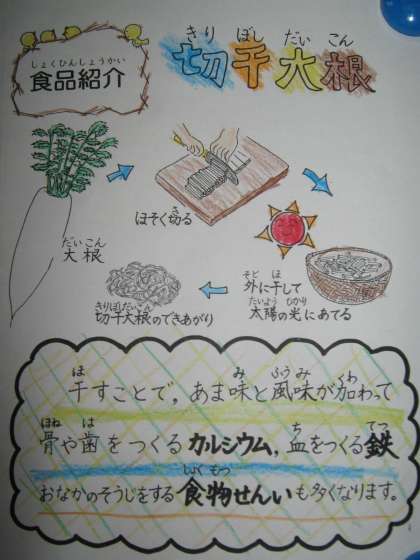 しょくひんしょうかい
食品紹介
きり ぼし だい こん
切干大根
だいこん
大根
き
ほそく切る
そと ほ
外に干して
たいよう ひかり
太陽の光にあてる
きりぼしだいこん
切干大根のできあがり
ほ み ふうみ くわ
干すことで，あま味と風味が加わって
ほね は ち てつ
骨や歯をつくるカルシウム，血をつくる鉄
しょくもつ
おなかのそうじをする食物せんいも多くなります。